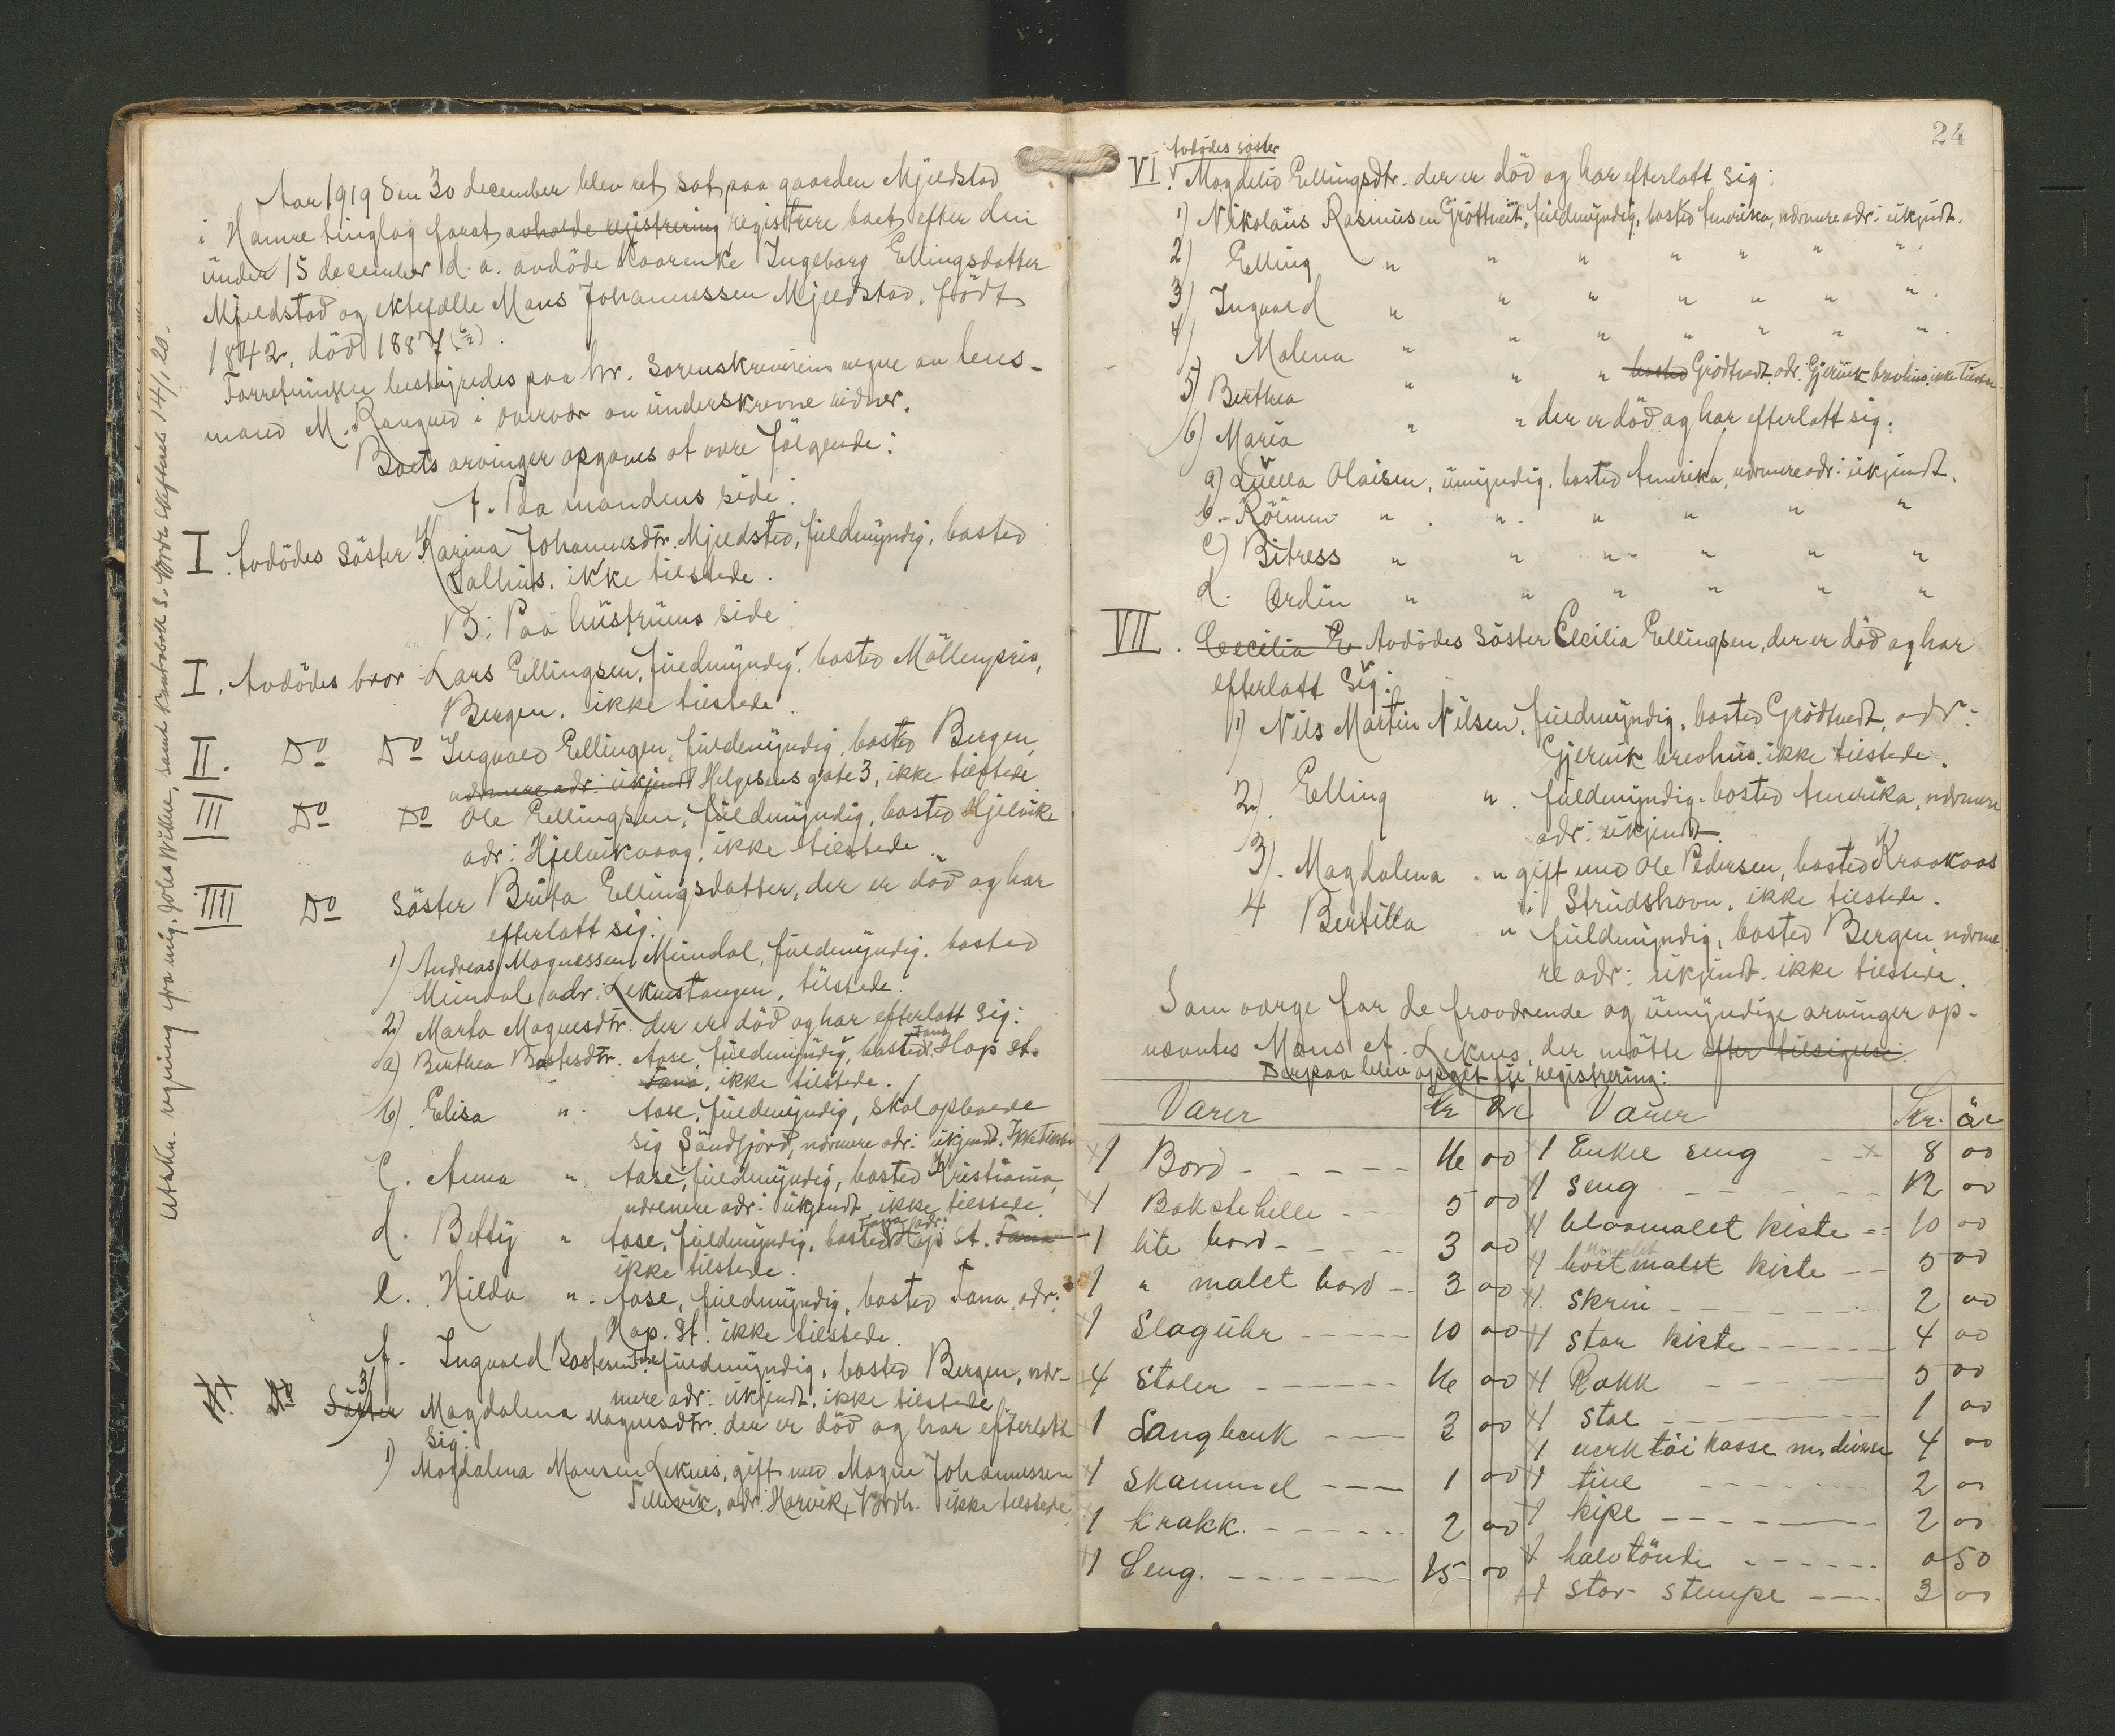 Aar 1919 den 30 december blev ret sat paa gaarden Mjeldstad
i Hamre tinglag forat avholde registrering registrere boet efter den
under 15 december d. a. avdöde kaarenke Ingeborg Ellingsdatter
Mjeldstad og ektefælle Mons Johannessen Mjeldstad, födt
1842, död 1887
Forretningen bestyredes paa hr. Sorenskriverens vegne av lens-
mand M. Rongved i overvær av underskrevne vidner.
Boets arvinger opgaves at være følgende:
A. Paa mandens side:
I. Avdödes Söster Karina Johannesdtr. Mjeldsted, fuldmyndig, bosted
Salhus. ikke tilstede.
B: Paa hustruens side:
I. Avdödes bror Lars Ellingsen, fuldmyndig, bosted Möllenpris,
Bergen. ikke tilstede.
II. Do Do Ingvald Ellingsen, fuldmyndig, bosted Bergen,
nærmere adr: ukjendt Helgesens gate 3, ikke tilstede
III Do Do Ole Ellingsen, fuldmyndig, bosted Hjelvike
adr: Hjelvikvaag, ikke tilstede
IIII Do Söster Brita Ellingsdatter, der er död og har
efterlatt sig:
1) Andreas Magnessen Mundal, fuldmyndig, bosted
Mundal, adr: Leknestangen, tilstede.
2) Marta Magnesdtr. der er död og har efterlatt sig:
a) Berthea Bastesdtr. Aase, fuldmyndig, bosted Fana Hop st.
Fana, ikke tilstede.
b). Elisa " Aase, fuldmyndig, skal opholde
sig Sandfjord, nærmere adr: ukjendt. Ikke tilstede
C. Anna " Aase, fuldmyndig, bosted Kristiania,
nærmere adr: ukjendt, ikke tilstede.
d. Betty " Aase, fuldmyndig, bosted Fana adr: Hop St. Fana
ikke tilstede.
e. Hilda " Aase, fuldmyndig, bosted Fana, adr:
Hop. St. ikke tilstede.
f. Ingvald Bastesen Aase fuldmyndig, bosted Bergen, nær-
mere adr: ukjendt, ikke tilstede
Do Söster 3) Magdalena Magnesdtr. der er död og har efterlatt
sig:
1) Magdalena Monsen Leknes, gift med Magne Johannessen
Tellevik, adr: Horvik, Nordh. ikke tilstede
24
VI. Avdödes söster
Magdeli Ellingsdtr. der er död og har efterlatt sig:
1) Nikolaus Rasmussen Gröttveit, fuldmyndig, bosted Amerika, nærmere adr: ukjendt.
2) Elling " " " " " " "
3) Ingvald " " " " " " "
4) Malena " " " " " " "
5) Berthea " " " bosted Grödtvedt, adr: Gjervik brevhus, ikke tilstede
6) Maria " " der er död og har efterlatt sig:
a) Luella Olaisen, umyndig, bosted Amerika, nærmere adr: ukjendt.
b. " " " " " "
c) Bitress " " " " " "
d. Ordin " " " " " "
VII. Cecilia E Avdödes söster Cecilia Ellingsen, der er död og har
efterlatt sig:
1) Nils Martin Nilsen, fuldmyndig, bosted Grödtvedt, adr:
Gjervik brevhus. ikke tilstede.
2) Elling " fuldmyndig. bosted Amerika, nærmere
adr: ukjendt.
3). Magdalena " gift med Ole Pedersen, bosted Kraakaas
i Strudshavn, ikke tilstede.
4 Bertilla " fuldmyndig, bosted Bergen, nærme
re adr: ukjendt. ikke tilstede.
Som værge for de fraværende og umyndige arvinger op-
nævntes Mons A. Leknes, der mötte efter tilsigelse.
Derpaa blev opgit til registrering:
Varer Kr Øre Varer Kr. öre
1 Bord 16 00 1 Enkel seng 8 00
1 Bokstehille 5 00 1 seng 12 00
1 lite bord 3 00 1 blaamalet kiste 10 00
1 " malet bord 3 00 1 malet kiste 5 00
1 Slaguhr 10 00 1 skrin 2 00
4 Stoler 16 00 1 stor kiste 4 00
1 Langbenk 3 00 1 Rokk 5 00
1 Skammel 1 00 1 stol 1 00
1 Krakk. 2 00 1 verktöikasse m. diverse 4 00
1 Seng. 15 00 1 tine 2 00
1 kipe 2 00
1 halvtönde 0 50
1 stor stempe 3 00
Utskr. regning fra mig, Johs Wikne, samt